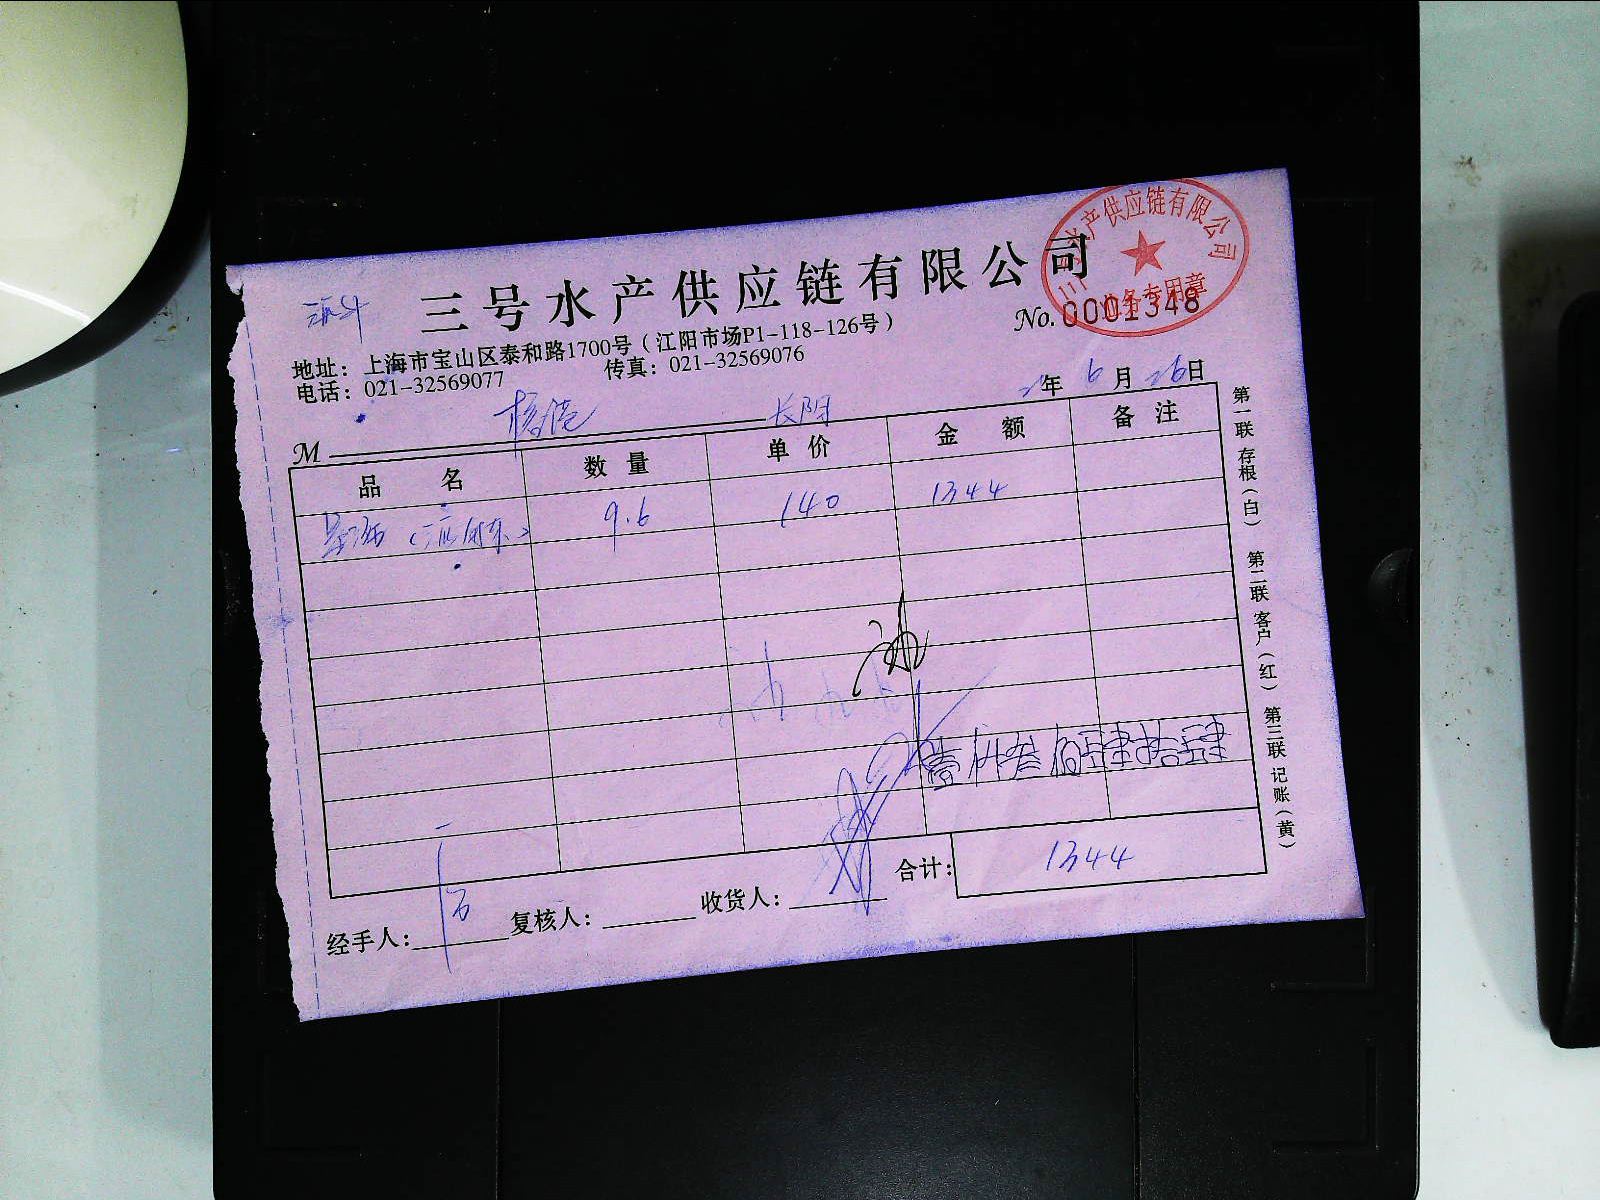 三号水产供应链有限公司
三号水产供应链有限公司
业务专用章
No. 0001348
地址：上海市宝山区泰和路1700号（江阳市场P1-118-126号）
电话：021-32569077 传真：021-32569076
年 6 月 26 日
M 长阳
品 名 数 量 单 价 金 额 备 注
9.6 140 1344
壹仟叁佰肆拾肆
合计： 1344
经手人： 复核人： 收货人：
第一联 存根（白） 第二联 客户（红） 第三联 记账（黄）